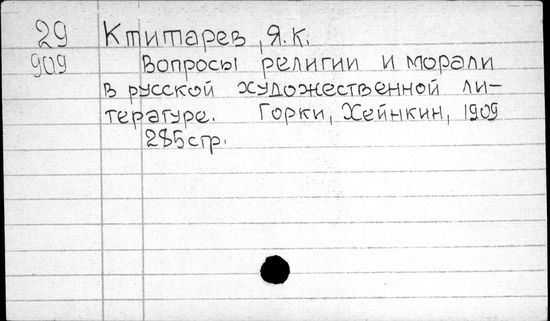 29 Ктитарев, Я.К.
909 Вопросы религии и морали
в русской художественной ли-
тературе. Горки, Хейнкин, 1909
285стр.